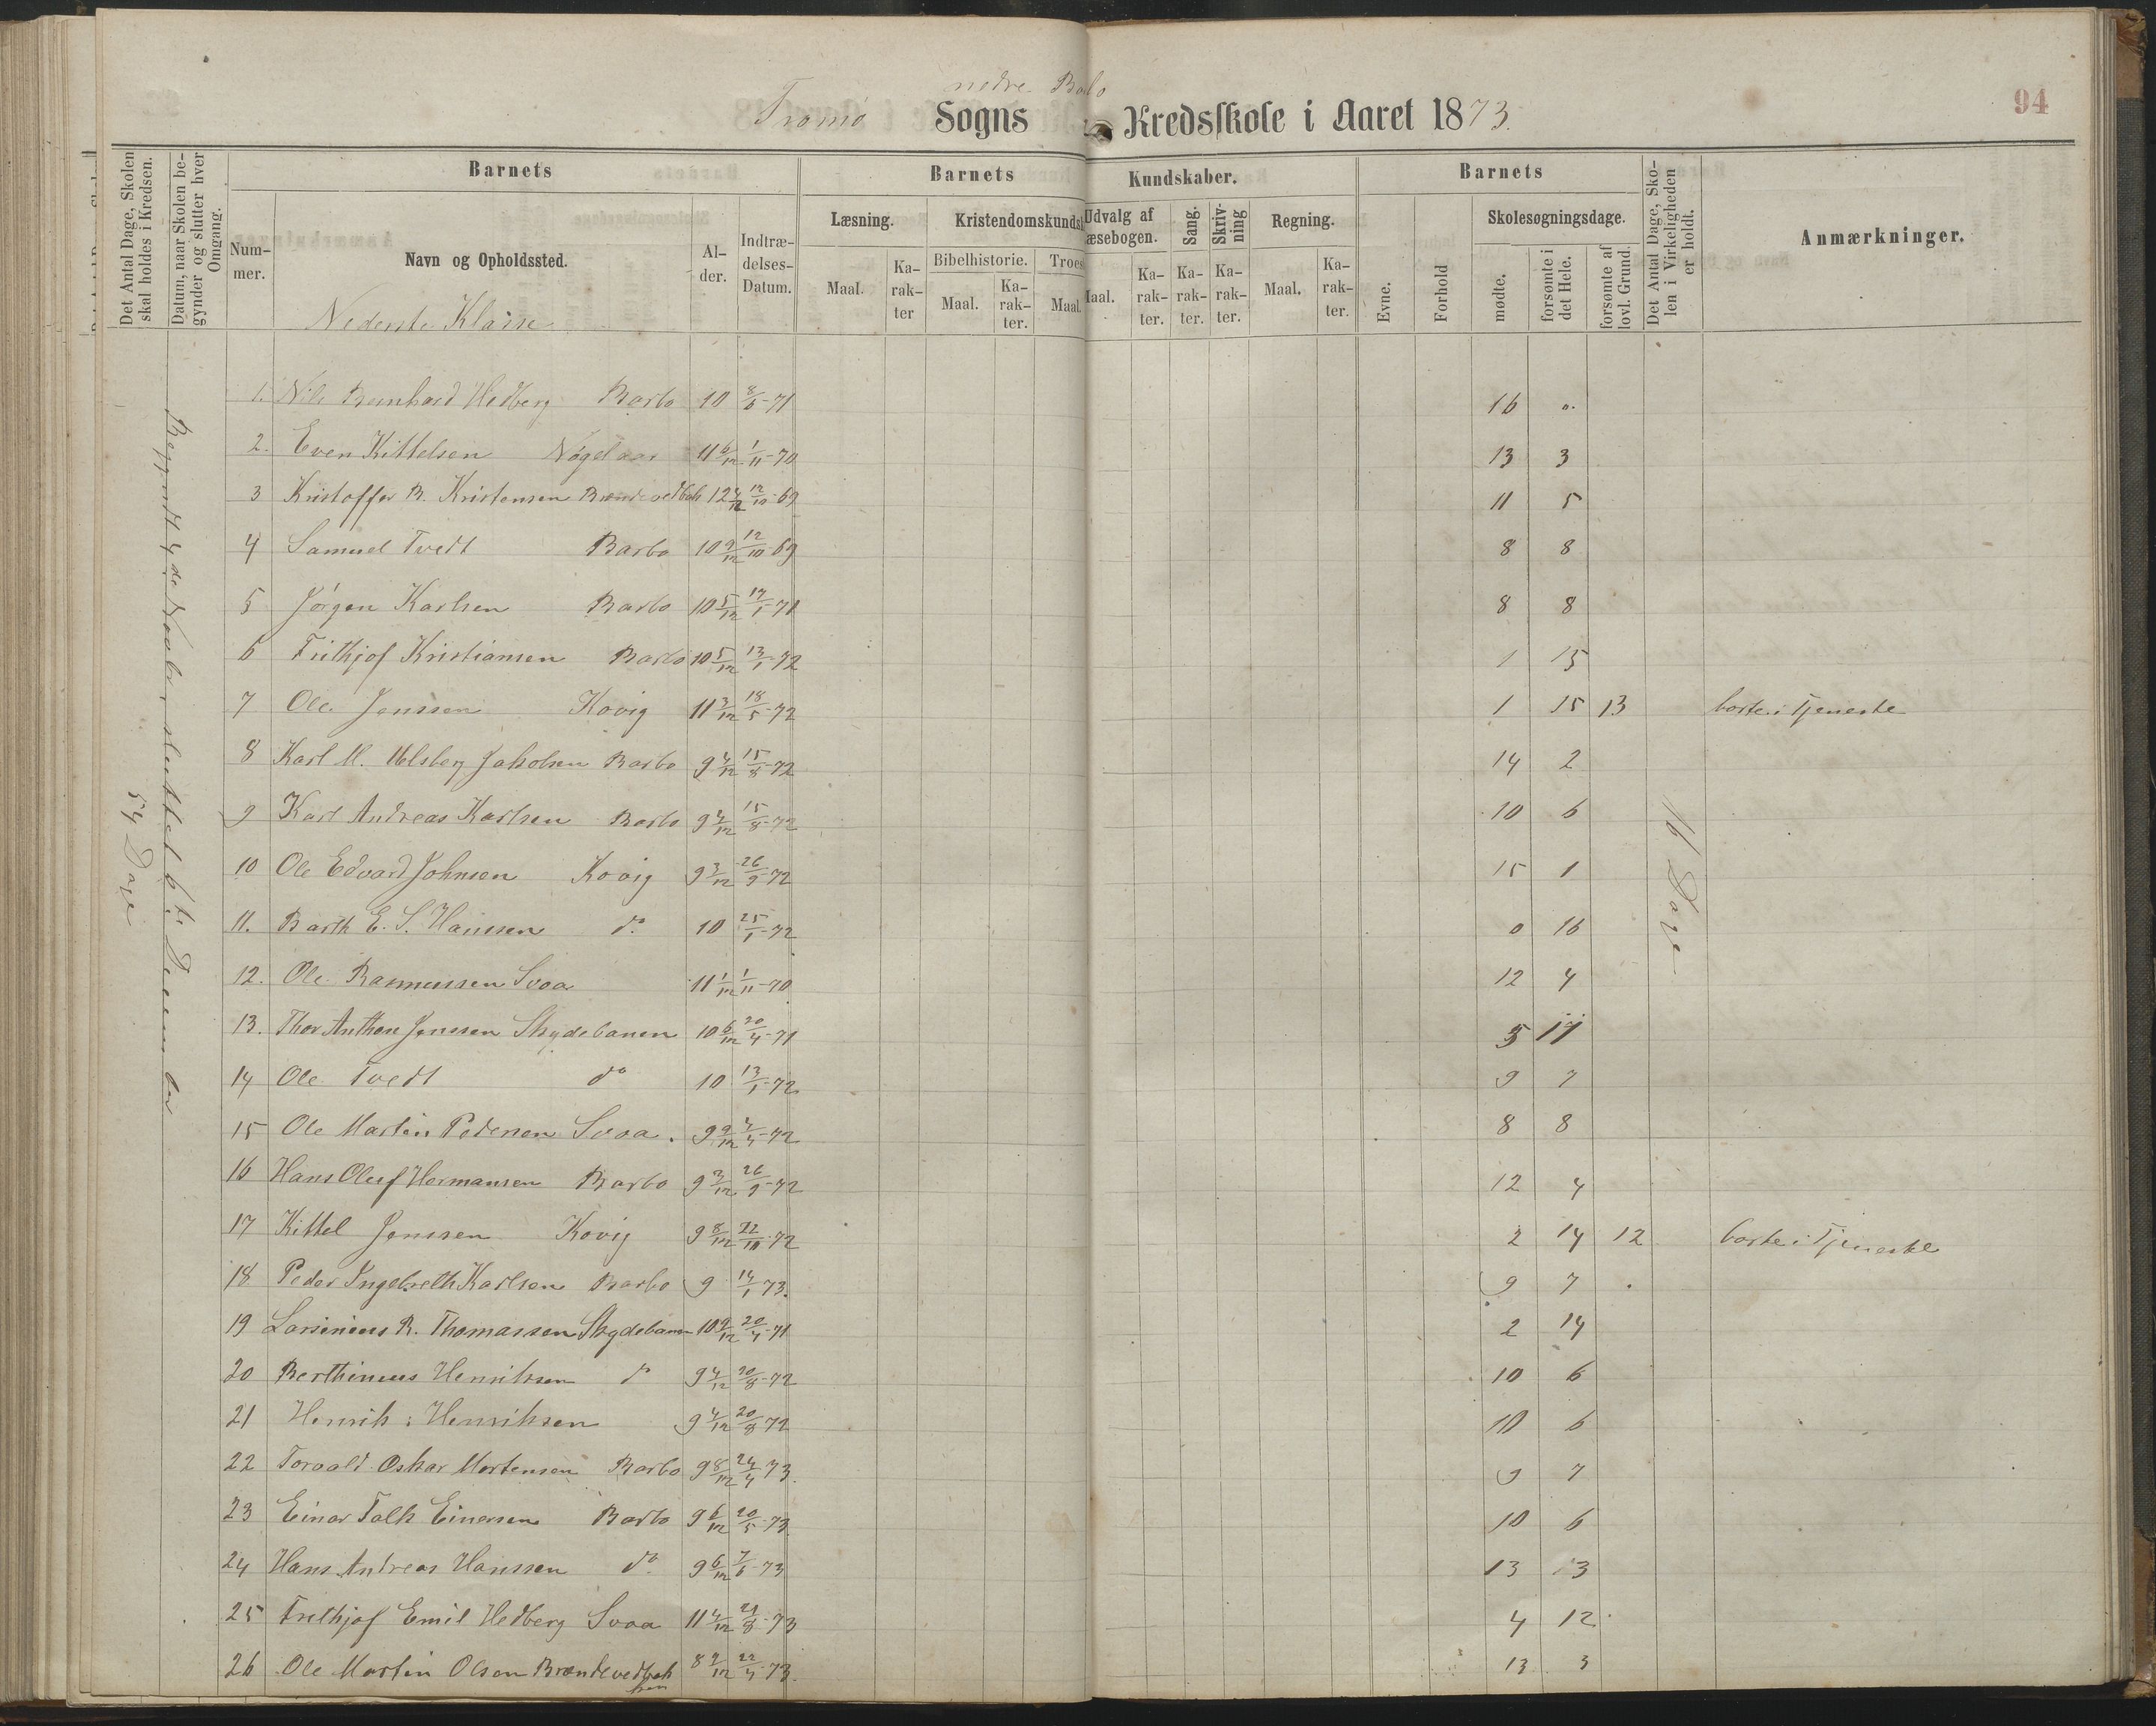 nedre Barbo
Tromø Sogns Kredsskole i Aaret 1873.
94
Det Antal Dage, Skolen skal holdes i Kredsen.
Datum, naar Skolen begynder og slutter hver Omgang.
Barnets
Barnets
Kundskaber.
Barnets
Det Antal Dage, Skolen i Virkeligheden er holdt.
Anmærkninger.
Nummer.
Navn og Opholdssted.
Alder.
Indtrædelses-Datum.
Læsning.
Kristendomskundsk
Udvalg af
æsebogen.
Sang.
Skrivning
Regning.
Evne.
Forhold
Skolesøgningsdage.
Maal.
Karakter
Bibelhistorie.
Troes
Maal.
Karakter.
Maal.
Maal.
Karakter.
Karakter.
Karakter.
Maal.
Karakter.
mødte.
forsømte i det Hele.
forsømte af lovl. Grund.
Nederste Klasse
54 Dage
Begyndt 4de Novbr, sluttet 6te December
16 Dage
1. Nils Bernhard Hedberg Barbo 10 8/6-71 16 0.
2. Even Kittelsen 11 6/12 1/11-70 13 3
3 Kristoffer B. Kristensen Brændevedbak 12 4/12 12/10-69 11 5
4 Samuel Tvedt Barbo 10 9/12 12/10-69 8 8
5 Jørgen Karlsen Barbo 10 5/12 17/1-71 8 8
6 Frithjof Kristiansen Barbo 10 5/12 13/1-72 1 15
7 Ole Jenssen Kovig 11 3/12 18/5-72 1 15 13 borte i Tjeneste
8 Karl M. Jakobsen Barbo 9 4/12 15/8-72 14 2
9 Karl Andreas Karlsen Barbo 9 4/12 15/8-72 10 6
10 Ole Edvard Johnsen Kovig 9 3/12 26/9-72 15 1
11. Barth E. S. Hanssen do. 10 25/1-72 0 16
12. Ole Rasmussen Svoa 11 1/12 1/11-70 12 4
13. Thor Anthon Jenssen Skydebanen 10 6/12 20/4-71 5 11
14 Ole Tvedt do 10 13/1-72 9 7
15 Ole Martin Pedersen Svoa. 9 9/12 4/4-72 8 8
16 Hans Oluf Hermansen Barbo 9 3/12 26/9-72 12 4
17 Kittel Jenssen Kovig 9 8/12 22/10-72 2 14 12 borte i Tjeneste
18 Peder Ingebreth Karlsen Barbo 9 14/1 73. 9 7
19 Larsinius R. Thomassen Skydebanen 10 9/12 20/4-71 2 14
20 Berthinius Henriksen do 9 4/12 20/8-72 10 6
21 Henrik Henriksen 9 4/12 20/8 72 10 6
22 Torvald Oskar Mortensen Barbo 9 8/12 24/4 73. 9 7
23 Einar Falk Einersen Barbo 9 6/12 20/5-73 10 6
24 Hans Andreas Hanssen do. 9 6/12 7/6-73 13 3
25 Frithjof Emil Hedberg Svoa 11 4/12 21/8-73 4 12
26 Ole Martin Olsen Brændevedbakken 8 9/12 22/4-73. 13 3